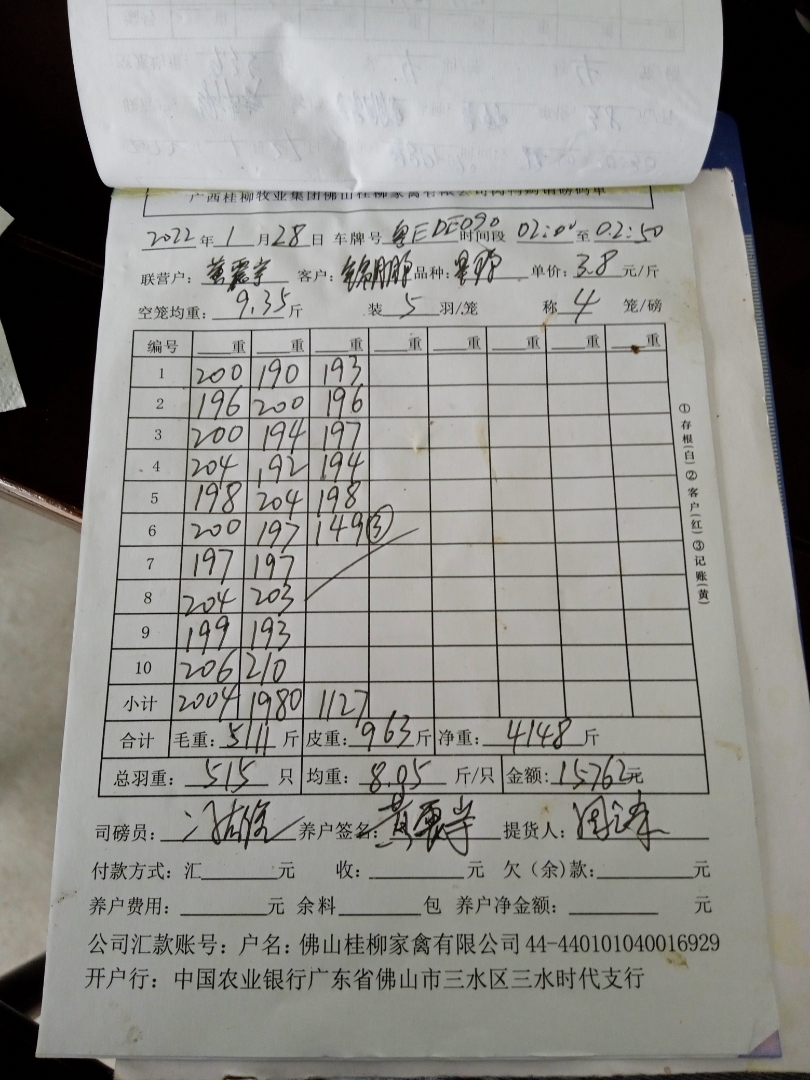 广西桂柳牧业集团佛山桂柳家禽有限公司肉鸭购销磅码单
2022年1月28日 车牌号 粤EDE090 时间段 02:00至02:50
联营户: 客户: 品种: 单价:3.8元/斤
空笼均重:9.35斤 装5羽/笼 称4笼/磅
编号 重 重 重 重 重 重 重 重
1 200 190 193
2 196 200 196
3 200 194 197
4 204 192 194
5 198 204 198
6 200 197 149③
7 197 197
8 204 203
9 199 193
10 206 210
小计 2004 1980 1127
合计 毛重:5111斤 皮重:963斤 净重:4148斤
总羽重:515只 均重:8.05斤/只 金额:15762元
司磅员: 养户签名: 提货人:
付款方式:汇 元 收: 元 欠(余)款: 元
养户费用: 元 余料 包 养户净金额: 元
公司汇款账号:户名:佛山桂柳家禽有限公司44-440101040016929
开户行:中国农业银行广东省佛山市三水区三水时代支行
①存根(白)②客户(红)③记账(黄)